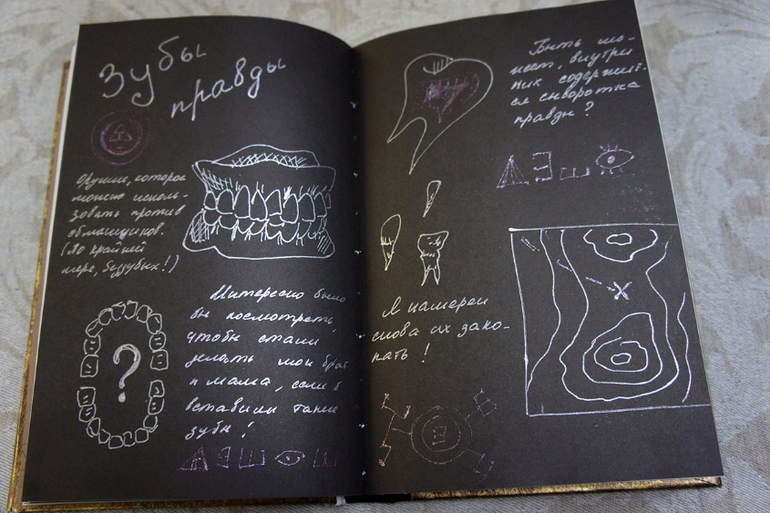 Зубы
правды
Оружие, которое
можно исполь-
зовать против
обманщиков.
(По крайней
мере, беззубых!)
Интересно было
бы посмотреть,
чтобы стали
делать мои брат
и мама, если б
вставили такие
зубы!
Быть мо-
жет, внутри
них содержит-
ся сыворотка
правды?
Я намерен
снова их зако-
пать!